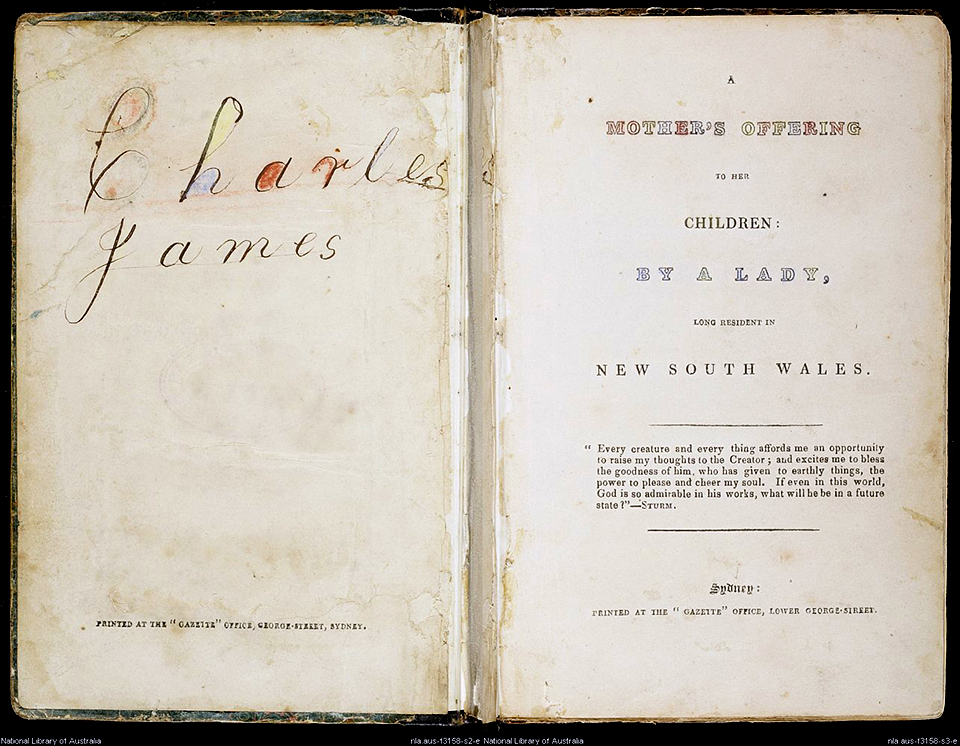 Charles
James
PRINTED AT THE "GAZETTE" OFFICE, GEORGE-STREET, SYDNEY.
A
MOTHER'S OFFERING
TO HER
CHILDREN:
BY A LADY,
LONG RESIDENT IN
NEW SOUTH WALES.
" Every creature and every thing affords me an opportunity
to raise my thoughts to the Creator ; and excites me to bless
the goodness of him, who has given to earthly things, the
power to please and cheer my soul. If even in this world,
God is so admirable in his works, what will he be in a future
state ?"—STURM.
Sydney:
PRINTED AT THE " GAZETTE" OFFICE, LOWER GEORGE-STREET.
National Library of Australia
nla.aus-f3158-s2-e National Library of Australia
nla.aus-f3158-s3-e